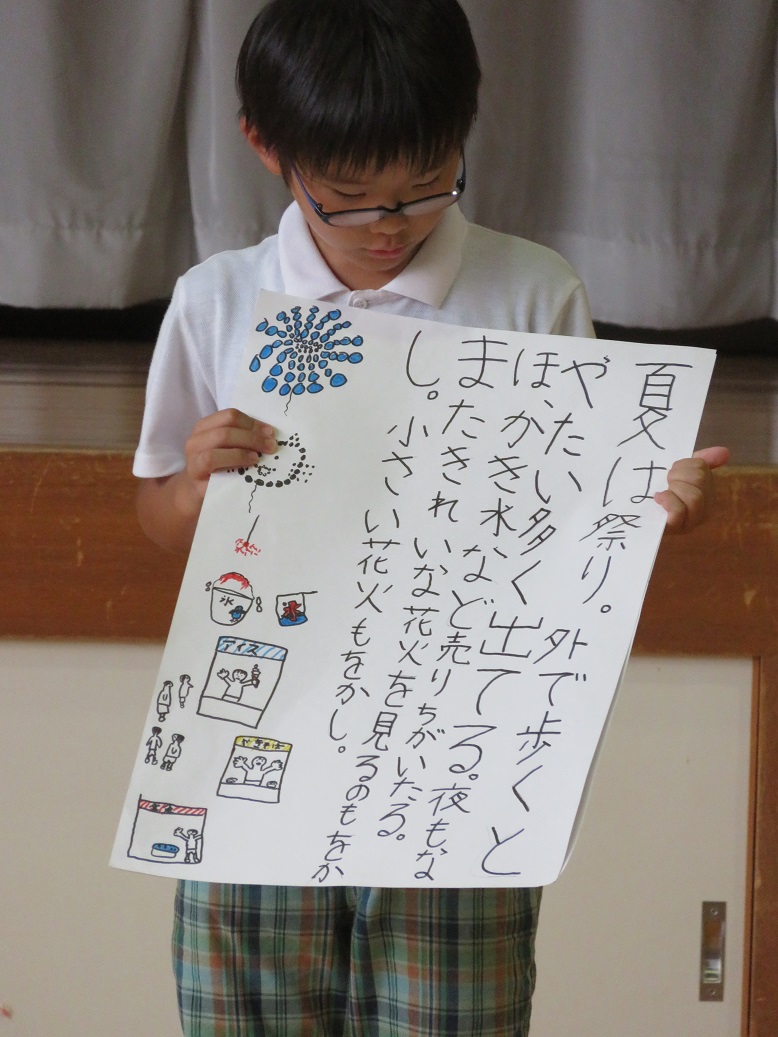 夏は祭り。外で歩くと
やたい多く出てる。夜もな
ほ、かき氷など売りちがいたる。
またきれいな花火を見るのもをか
し。小さい花火もをかし。
氷
氷
アイス
やきそば